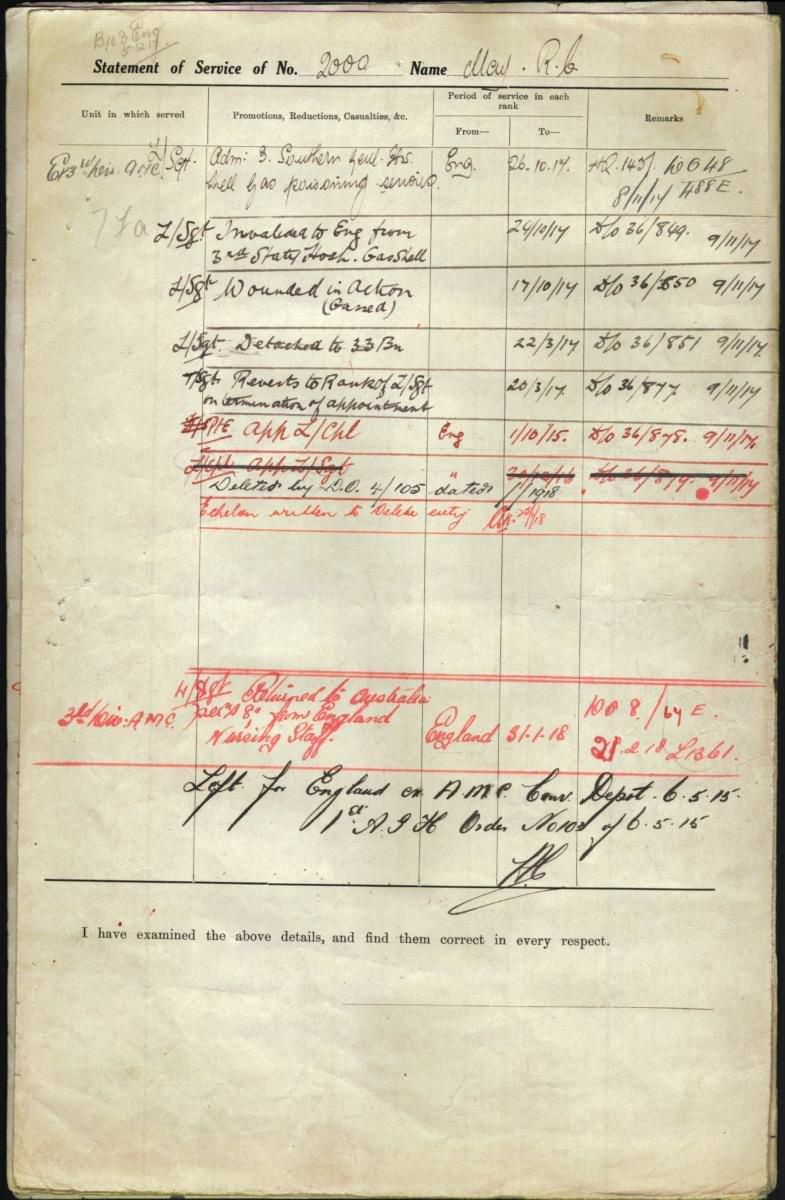 Bn 3 Eng
5.12.17.
Statement of Service of No. 2000 Name R.C
Unit in which served
Promotions, Reductions, Casualties, &c.
Period of service in each rank
From—
To—
Remarks
3rd Div. AMC. L/Sgt. Adm: 3. Southern Genl. Hos. Eng. 26.10.17. HQ. 1437. 48
Shell gas poisoning serious. 8/11/17 7488 E.
L/Sgt Invalided to Eng from 24/10/17 D/o 36/849. 9/11/17
3rd Staty Hosp. Gas Shell
L/Sgt Wounded in Action 17/10/17 D/o 36/850 9/11/17
(Gassed)
L/Sgt. Detached to 33 Bn 22/3/17 D/o 36/851 9/11/17
T/Sgt. Reverts to Rank of L/Sgt 20/3/17. D/o 36/877. 9/11/17
on termination of appointment
Pte App L/Cpl Eng 1/10/15. D/o 36/878. 9/11/17.
L/Cpl. App L/Sgt " D/o 36/879. 9/11/17
Deleted by D.O. 4/105 dated 1/1918
Echelon written to Delete entry
L/Sgt Returned to Australia
3rd Div: A.M.C. from England
Nursing Staff. England 31-1-18 DO 8./64 E.
21.2.18 L1361.
Left for England ex A.M.C. Conv. Depot. 6.5.15.
1st A G H Order No 103 of 6.5.15
I have examined the above details, and find them correct in every respect.